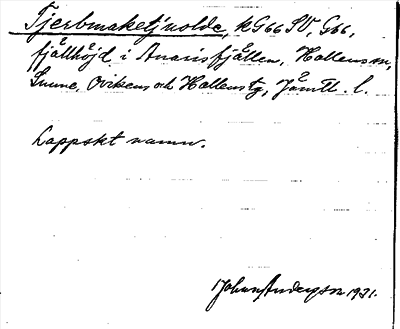 Tjerbmaketjuolde, k G66 SV, G66,
fjällhöjd i Anarisfjällen, Hallens sn,
Sunne, Ovikens och Hallens tg, Jämtl. l.
Lappskt namn.
Johan Anderson 1931.